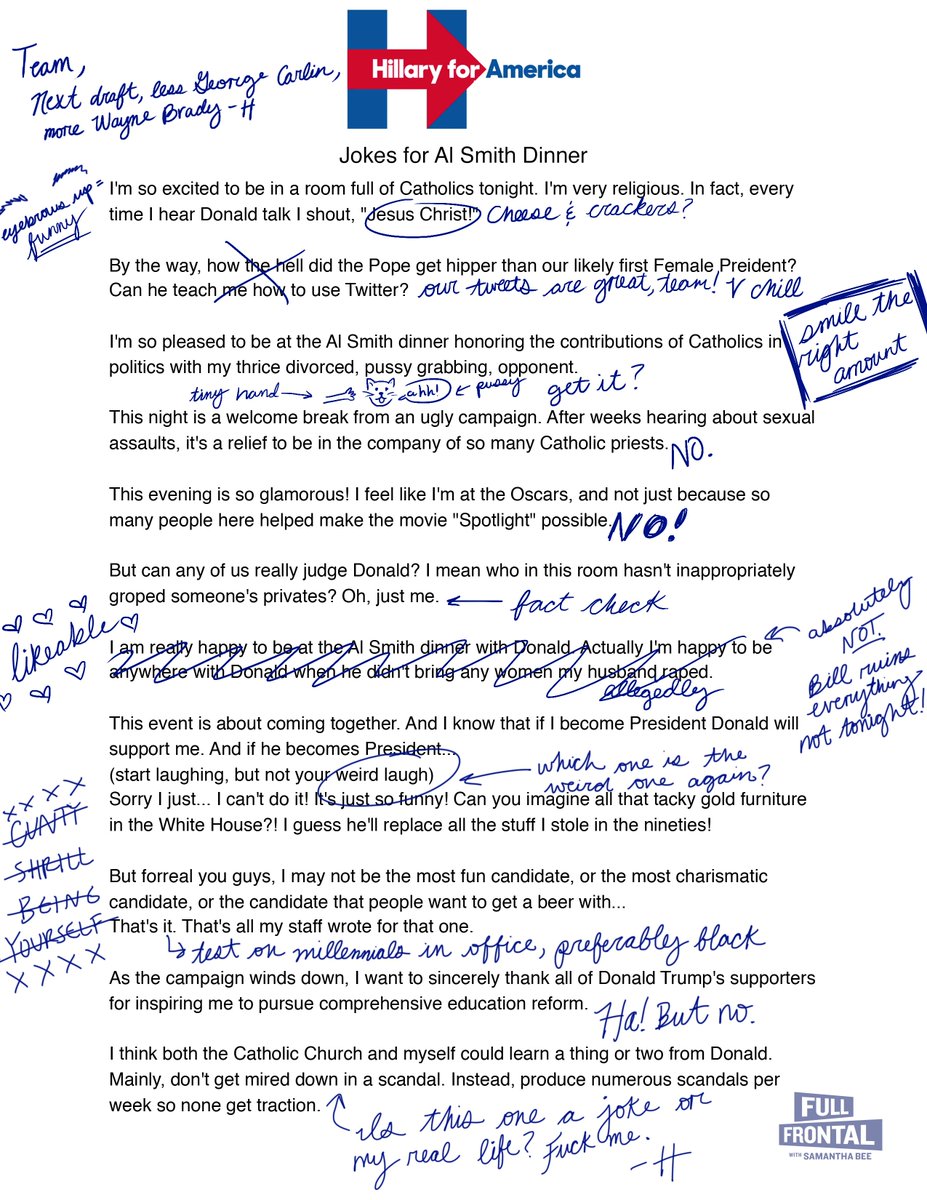 Team,
Next draft, less George Carlin,
more Wayne Brady -H
Hillary for America
Jokes for Al Smith Dinner
eyebrows up =
funny
I'm so excited to be in a room full of Catholics tonight. I'm very religious. In fact, every
time I hear Donald talk I shout, "Jesus Christ!" Cheese & crackers?
By the way, how the hell did the Pope get hipper than our likely first Female Preident?
Can he teach me how to use Twitter? our tweets are great, team! V chill
smile the
right
amount
I'm so pleased to be at the Al Smith dinner honoring the contributions of Catholics in
politics with my thrice divorced, pussy grabbing, opponent.
tiny hand ahh! pussy get it?
This night is a welcome break from an ugly campaign. After weeks hearing about sexual
assaults, it's a relief to be in the company of so many Catholic priests. NO.
This evening is so glamorous! I feel like I'm at the Oscars, and not just because so
many people here helped make the movie "Spotlight" possible. NO!
But can any of us really judge Donald? I mean who in this room hasn't inappropriately
groped someone's privates? Oh, just me. fact check
likeable
I am really happy to be at the Al Smith dinner with Donald. Actually I'm happy to be
anywhere with Donald when he didn't bring any women my husband raped.
allegedly
absolutely
NOT.
Bill ruins
everything
not tonight!
This event is about coming together. And I know that if I become President Donald will
support me. And if he becomes President...
(start laughing, but not your weird laugh)
which one is the
weird one again?
Sorry I just... I can't do it! It's just so funny! Can you imagine all that tacky gold furniture
in the White House?! I guess he'll replace all the stuff I stole in the nineties!
X X X X
CUNTY
SHRILL
BEING
YOURSELF
X X X X
But forreal you guys, I may not be the most fun candidate, or the most charismatic
candidate, or the candidate that people want to get a beer with...
That's it. That's all my staff wrote for that one.
test on millennials in office, preferably black
As the campaign winds down, I want to sincerely thank all of Donald Trump's supporters
for inspiring me to pursue comprehensive education reform. Ha! But no.
I think both the Catholic Church and myself could learn a thing or two from Donald.
Mainly, don't get mired down in a scandal. Instead, produce numerous scandals per
week so none get traction.
Is this one a joke or
my real life? Fuck me.
-H
FULL
FRONTAL
WITH SAMANTHA BEE